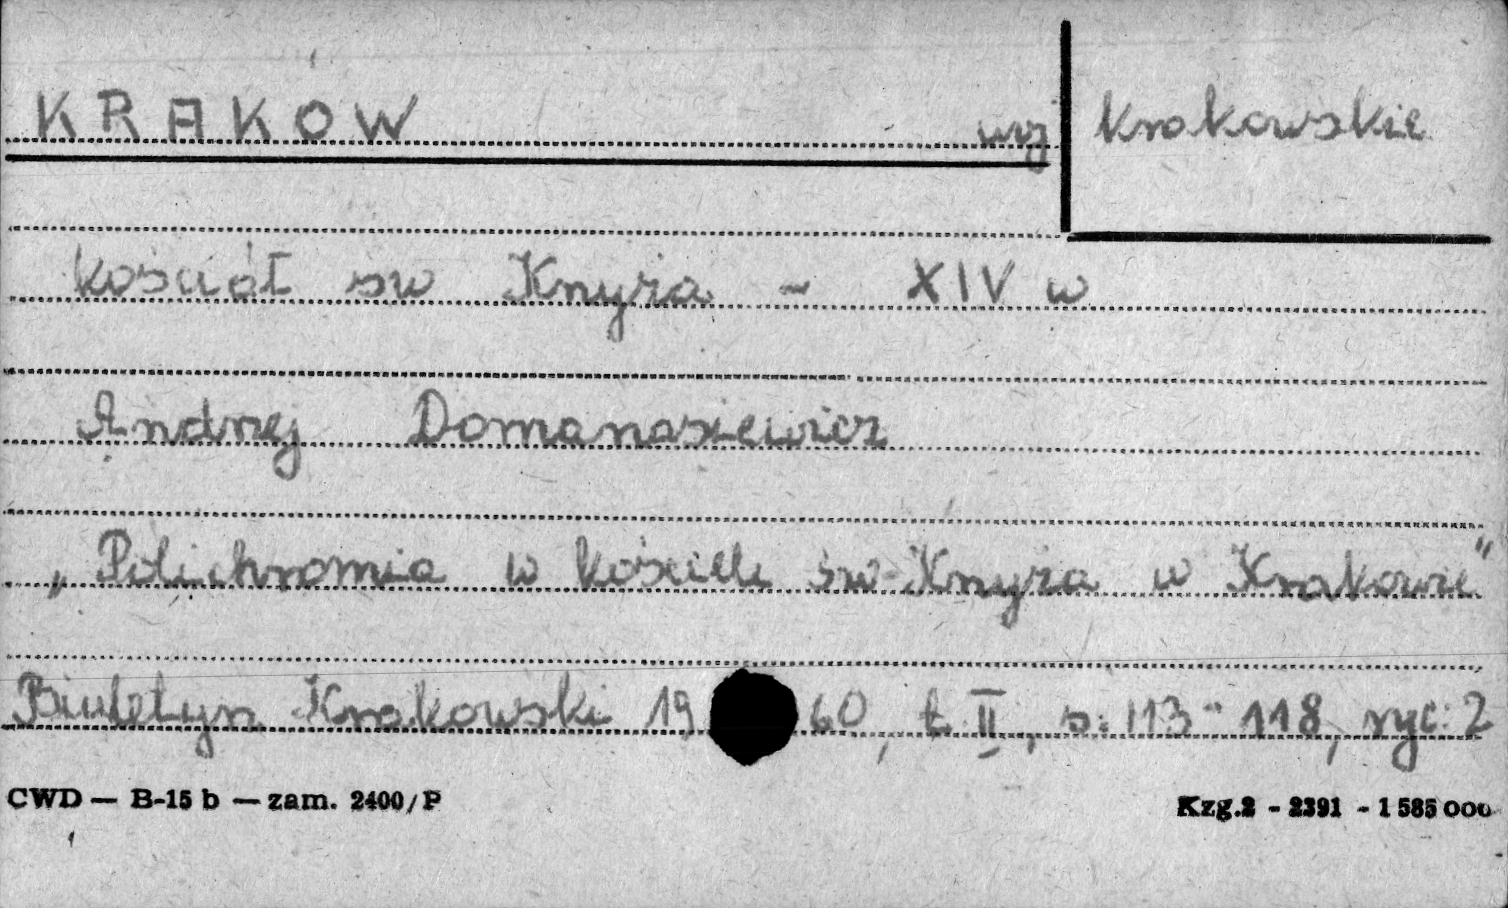 KRAKOW woj krakowskie
kościół sw Krzyża - XIV w
Andrzej Domanasiewicz
„Polichromia w kościele św Krzyża w Krakowie"
Biuletyn Krakowski 19 60, t. II, s. 113-118, ryc. 2
CWD — B-15 b — zam. 2400/P Kzg.2 - 2391 - 1 585 000